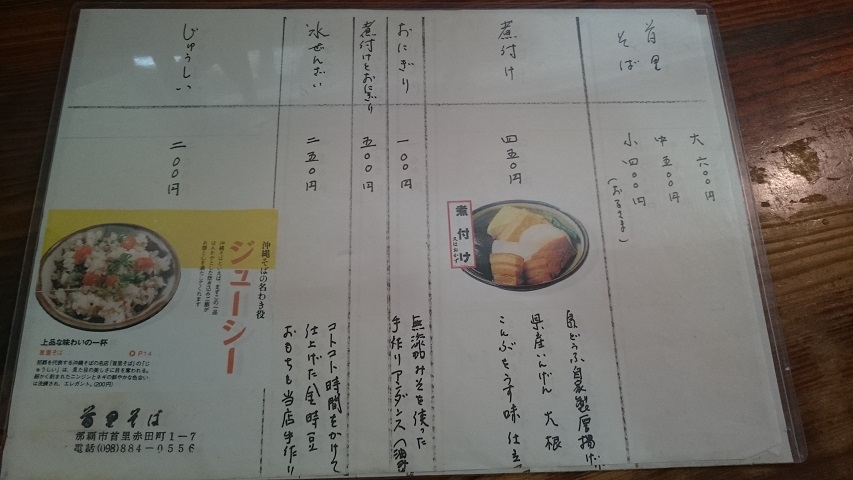 首里
そば
大 六〇〇円
中 五〇〇円
小 四〇〇円
(おるさま)
煮付け
四五〇円
煮付け
島どうふ自家製厚揚げ
県産いんげん 大根
こんぶをうす味仕立
おにぎり
一〇〇円
無添加みそを使った
手作りアンダンスー(油
煮付けとおにぎり
五〇〇円
氷ぜんざい
二五〇円
コトコト時間をかけて
仕上げた金時豆
おもちも当店手作り
じゅうしい
二〇〇円
沖縄そばの名わき役
ジューシー
上品な味わいの一杯
首里そば P14
首里そば
那覇市首里赤田町1－7
電話(098)884-0556